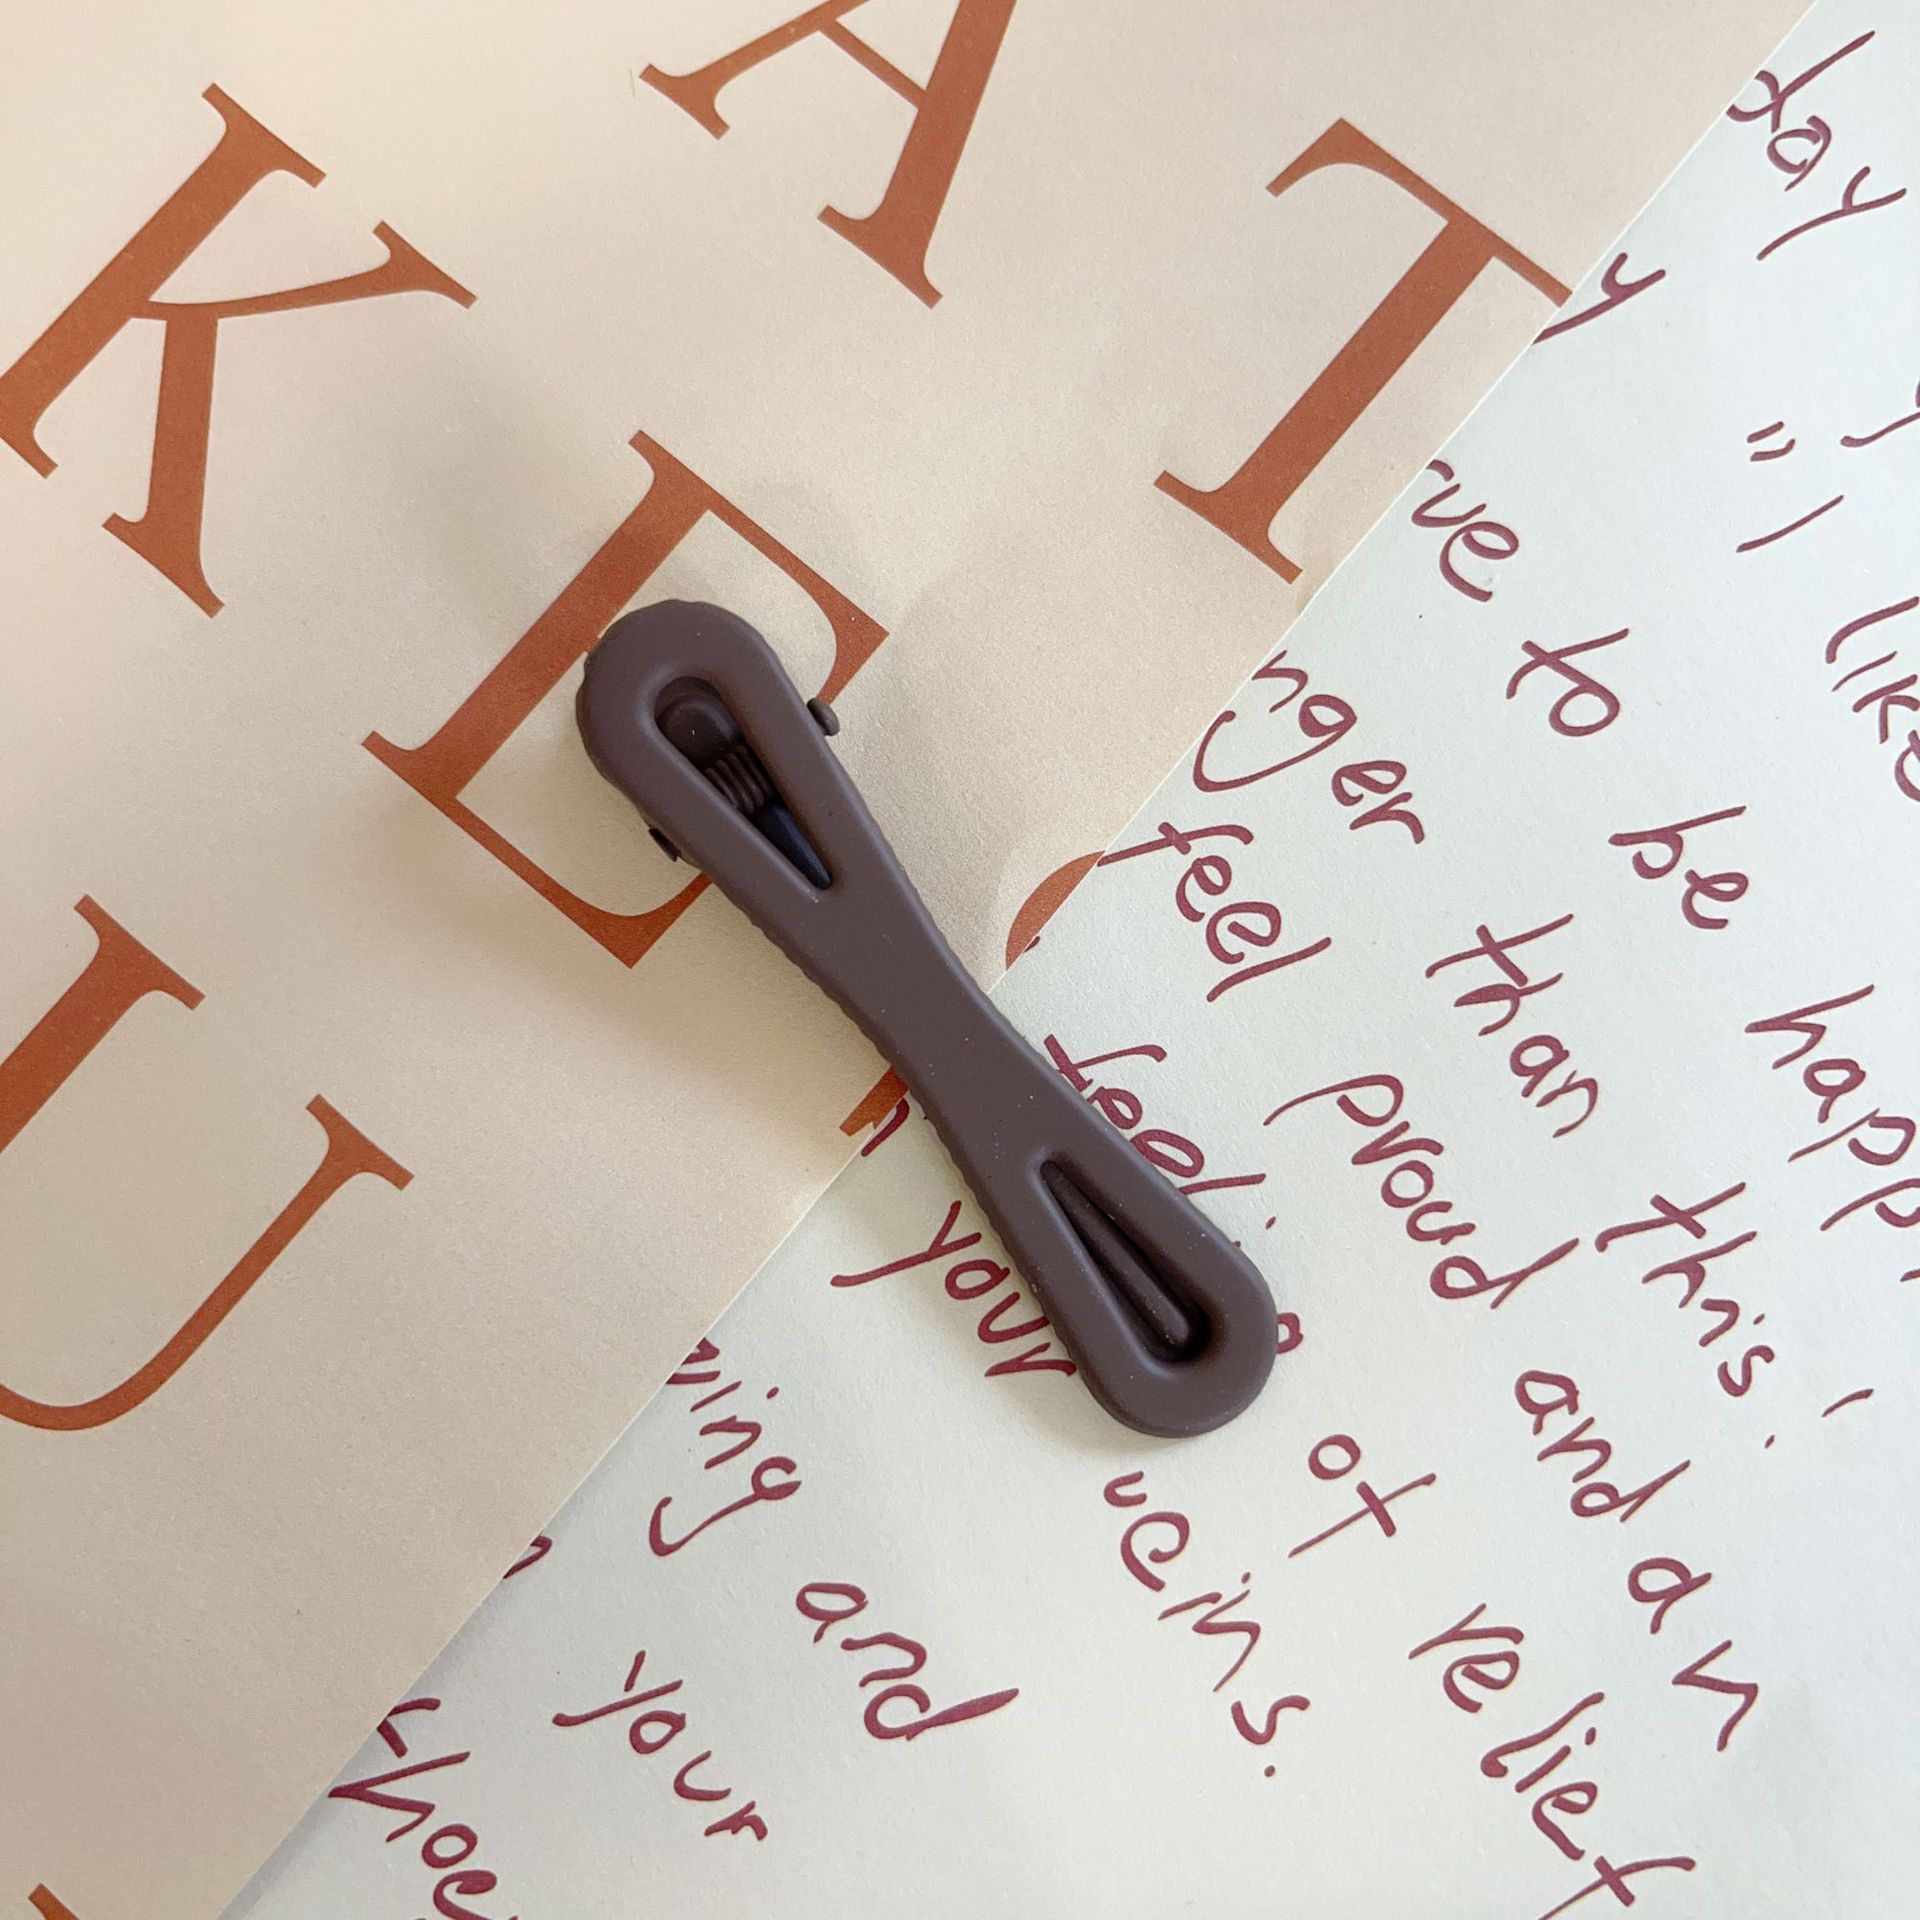 A T
K E
U
day
y " I like
rue to be happ
nger than this"
feel proud and an
feeling of relief
your veins.
ving and
your